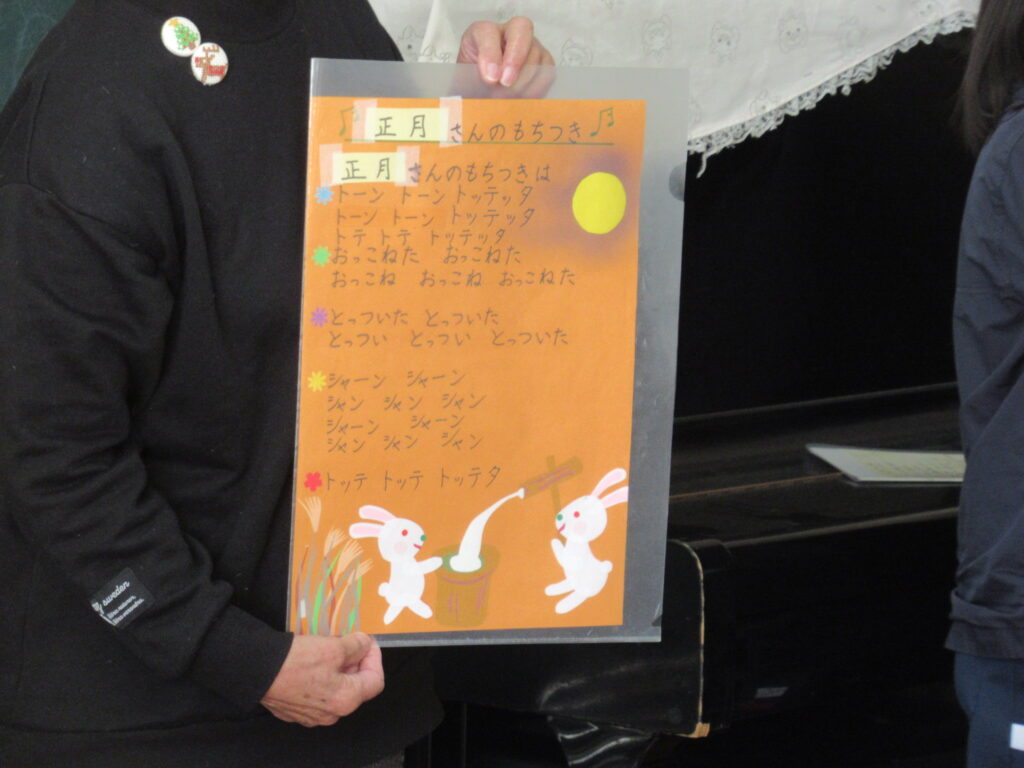 正月さんのもちつき
正月さんのもちつきは
トーン トーン トッテッタ
トーン トーン トッテッタ
トテ トテ トッテッタ
おっこねた おっこねた
おっこね おっこね おっこねた
とっついた とっついた
とっつい とっつい とっついた
シャーン シャーン
シャン シャン シャン
シャーン シャーン
シャン シャン シャン
トッテ トッテ トッテタ
sweden